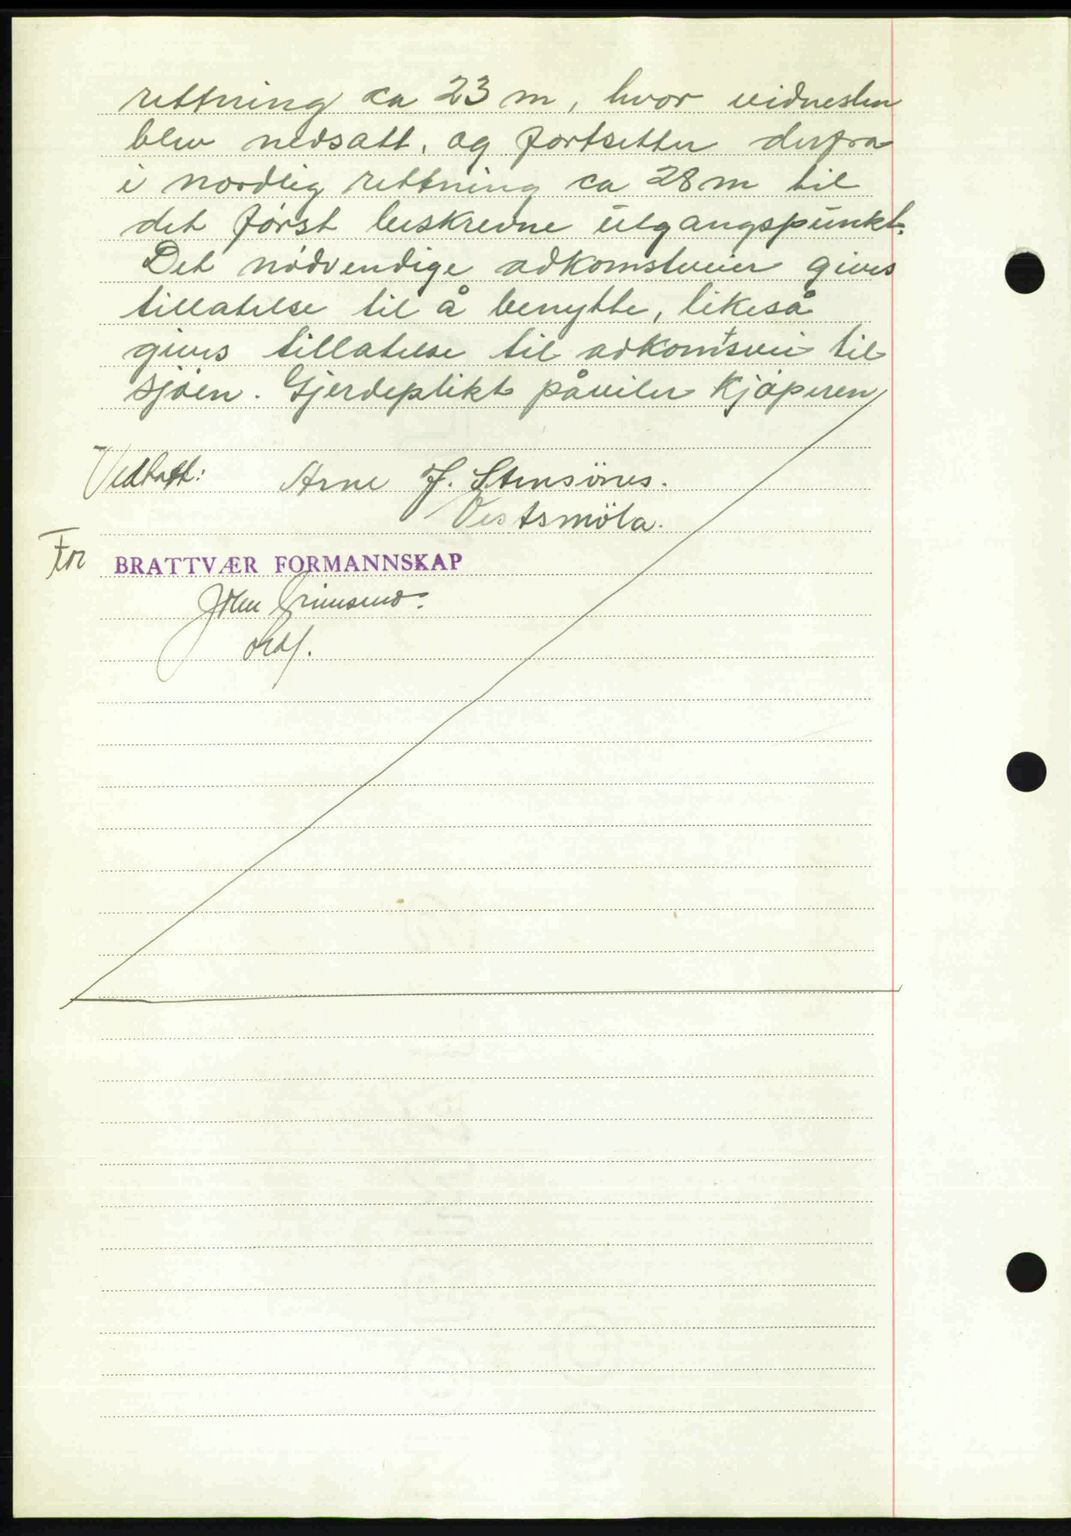 rettning ca 23 m, hvor vidnesten
blev nedsatt, og fortsetter derfra
i nordlig rettning ca 28 m til
det først beskrevne utgangspunkt.
Det nödvendige adkomstveier gives
tillatelse til å benytte, likeså
gives tillatelse til adkomtsvei til
sjøen. Gjerdeplikt påviler kjøperen
Vedtatt: Arne J. Stensönes.
Vestsmöla.
For BRATTVÆR FORMANNSKAP
John Grimsmo.
ordf.